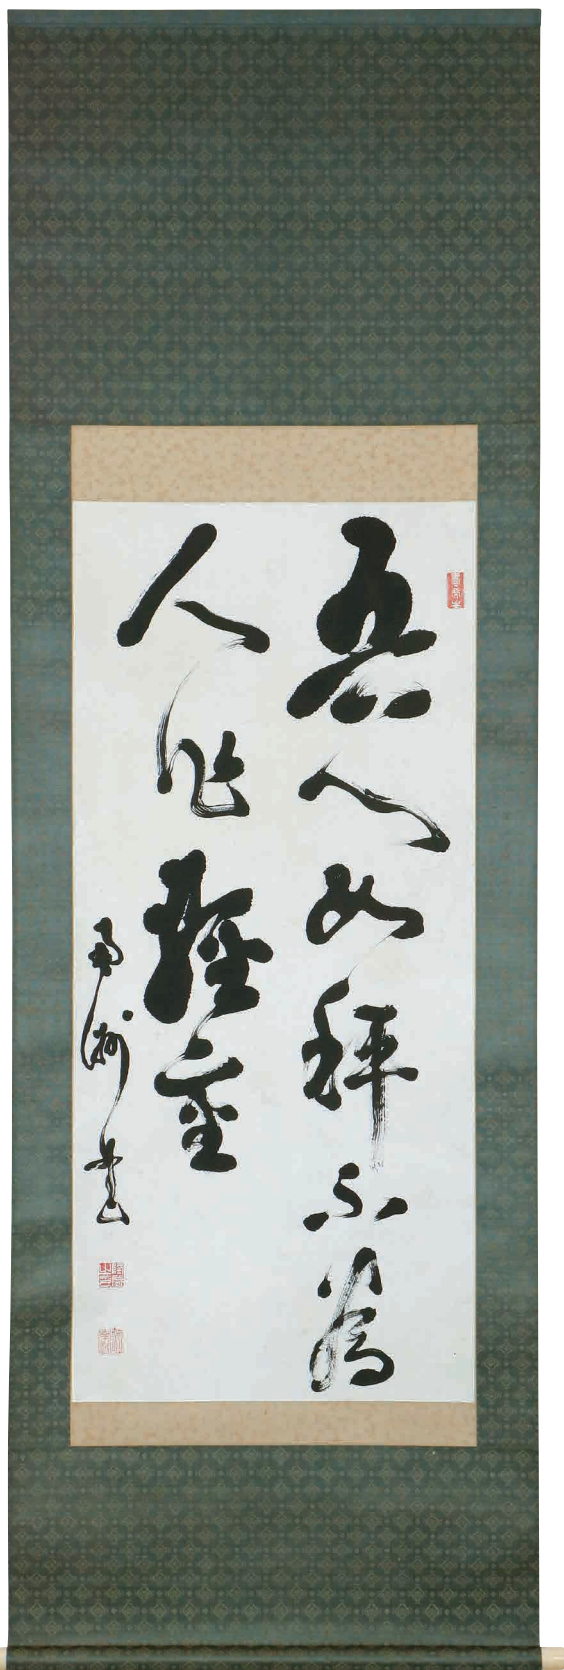 吾心如秤不為
人作軽重
雨洲書